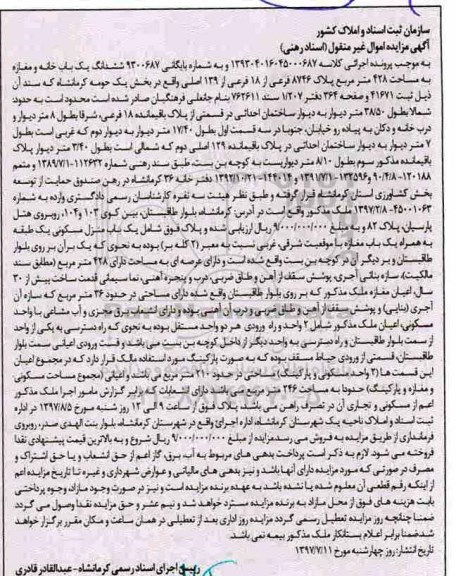 سازمان ثبت اسناد و املاک کشور
آگهی مزایده اموال غیر منقول (اسناد رهنی)
به موجب پرونده اجرائی کلاسه ۱۳۹۳۰۴۰۱۶۰۴۵۰۰۰۶۸۷ و به شماره بایگانی ۹۳۰۰۶۸۷ ششدانگ یک باب خانه و مغازه
به مساحت ۴۲۸ متر مربع پلاک ۸۷۴۶ فرعی از ۱۸ فرعی از ۱۳۹ اصلی واقع در بخش یک حومه کرمانشاه که سند آن
ذیل ثبت ۴۱۶۷۱ و صفحه ۳۶۴ دفتر ۱/۲۰۷ سند ۷۶۲۶۱۱ بنام جانعلی فرهنگیان صادر شده است محدود است به حدود:
شمالا بطول ۳۸/۵۰ متر دیوار به دیوار ساختمان احداثی در قسمتی از پلاک باقیمانده ۱۸ فرعی، شرقا بطول ۸ متر دیوار و
درب خانه و دکان به پیاده رو خیابان، جنوبا در سه قسمت اول بطول ۱۷/۴۰ متر دیوار به دیوار دوم که غربی است بطول
۷ متر دیوار به دیوار ساختمان احداثی در پلاک باقیمانده ۱۲۹ اصلی دوم که شمالی است بطول ۳/۴۰ متر دیوار پلاک
باقیمانده مذکور سوم بطول ۸/۱۰ متر دیواریست به کوچه بن بست، طبق سند رهنی شماره ۱۱۲۶۳۲-۱۳۸۹/۷/۱۰ و متمم
۱۲۰۱۸۸-۹۰/۴/۸ ۱۳۲۵۹۶-۱۳۹۱/۷/۱ ۱۴۴۰۱۴-۱۳۹۲/۱۰/۲۱ دفتر خانه ۳۶ کرمانشاه در رهن صندوق حمایت از توسعه
بخش کشاورزی استان کرمانشاه قرار گرفته و طبق نظر هیئت سه نفره کارشناسان رسمی دادگستری وارده به شماره
۴۵۰۰۱۰۶۳-۱۳۹۷/۲/۸ ملک مذکور واقع است در آدرس: کرمانشاه، بلوار طاقبستان، بین کوی ۱۰۳ و ۱۰۴، روبروی هتل
پارسیان، پلاک ۸۲ و به مبلغ ۹/۰۰۰/۰۰۰/۰۰۰ ریال ارزیابی شده و پلاک فوق شامل یک باب منزل مسکونی یک طبقه
به همراه یک باب مغازه با موقعیت شرقی، غربی نسبت به معبر (۲ کله بر) بوده به نحوی که یک بر آن بر روی بلوار
طاقبستان و بر دیگر آن در کوچه بن بست واقع شده است و دارای عرصه ای به مساحت دارای ۴۲۸ متر مربع (مطابق سند
مالکیت)، سازه بنائی آجری، پوشش سقف از آهن و طاق ضربی، درب و پنجره آهنی، نما سیمانی قدمت ساخت بیش از ۳۰
سال، اعیان مغازه ملک مذکور که بر روی بلوار طاقبستان واقع شده دارای مساحتی در حدود ۳۶ متر مربع که سازه آن
آجری (بنایی) و پوشش سقف از آهن و طاق ضربی و درب آن آهنی بوده و دارای انشعاب برق مجزی و آب مشاعی با واحد
مسکونی، اعیان ملک مذکور شامل ۲ واحد و راه ورودی هر دو واحد مستقل بوده به نحوی که راه دسترسی به یکی از واحد
از سمت بلوار طاقبستان و راه دسترسی به واحد دیگر از داخل کوچه بن بست می باشد و قسمت اعیانی سمت بلوار
طاقبستان، قسمتی از ورودی حیاط مسقف بوده که به صورت پارکینگ مورد استفاده مالک قرار دارد که در مجموع اعیان
این قسمت ها (۲ واحد مسکونی و پارکینگ) مساحتی در حدود ۲۱۰ متر مربع می باشد و اعیانی (مجموع مساحت مسکونی
و مغازه و پارکینگ) حدودا به مساحت ۲۴۶ متر مربع می باشد دارای انشعابات که برابر گزارش مامور اجرا ملک مذکور
اعم از مسکونی و تجاری آن در تصرف راهن می باشد. پلاک فوق از ساعت ۹ الی ۱۲ روز شنبه مورخ ۱۳۹۷/۸/۵ در اداره
ثبت اسناد و املاک ناحیه یک شهرستان کرمانشاه اداره اجرای واقع در شهرستان کرمانشاه، بلوار بنت الهدی صدر، روبروی
فرمانداری از طریق مزایده به فروش می رسد مزایده از مبلغ ۹/۰۰۰/۰۰۰/۰۰۰ ریال شروع و به بالاترین قیمت پیشنهادی نقدا
فروخته می شود. لازم به ذکر است پرداخت بدهی های مربوط به آب، برق، گاز اعم از حق انشعاب و یا حق اشتراک و
مصرف در صورتی که مورد مزایده دارای آنها باشد و نیز بدهی های مالیاتی و عوارض شهرداری و غیره تا تاریخ مزایده اعم
از اینکه رقم قطعی آن معلوم شده یا نشده باشد به عهده برنده مزایده است و نیز در صورت وجود مازاد، وجوه پرداختی
بابت هزینه های فوق از محل مازاد به برنده مزایده مسترد خواهد شد و نیم عشر و حق مزایده نقدا وصول می گردد
ضمنا چنانچه روز مزایده تعطیل رسمی گردد مزایده روز اداری بعد از تعطیلی در همان ساعت و مکان مقرر برگزار خواهد
شد ضمنا برابر اعلام بستانکار ملک مذکور بیمه نمی باشد.
تاریخ انتشار: روز چهارشنبه مورخ ۱۳۹۷/۷/۱۱
رییس اجرای اسناد رسمی کرمانشاه - عبدالقادر قادری